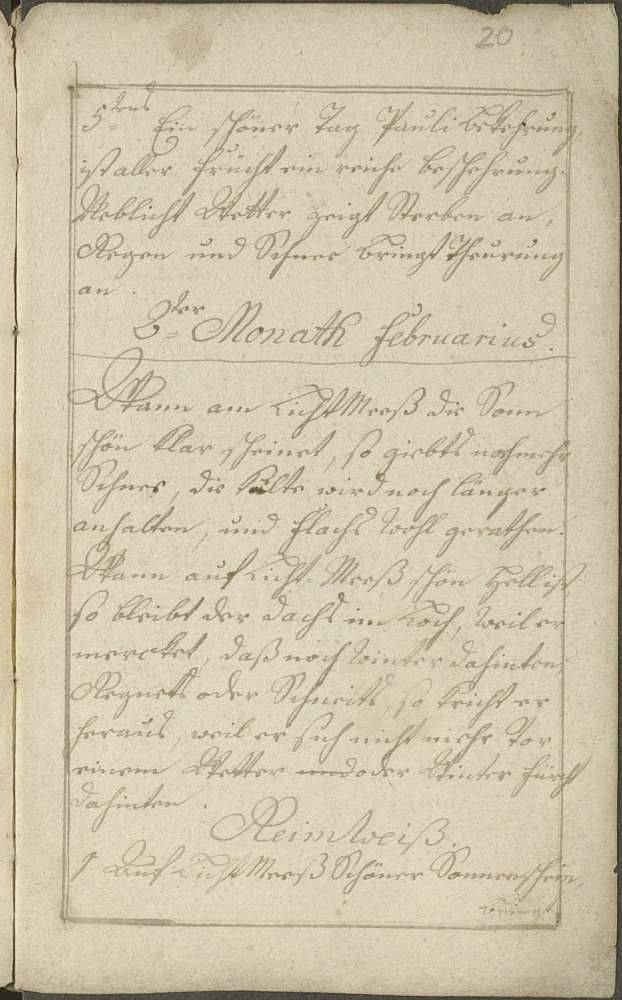 20
5tens Ein schöner Tag Pauli bekehrung,
ist aller frücht ein reiche beschehrung.
Neblicht Wetter zeigt Sterben an,
Regen und Schnee bringt Theurung
an.
2ter Monath Februarius.
Wann am LichtMeeß die Sonn
schön klar scheinet, so giebts nochmehr
Schnee, die kälte wird noch länger
anhalten, und flachs wohl gerathen.
Wann auf Licht-Meeß schön hell ist,
so bleibt der dachs im Loch, weil er
mercket, daß noch winter dahinten,
Regnets oder Schneits, so kricht er
heraus, weil er sich nicht mehr vor
einem Wetter und oder Winter fürcht
dahinten.
Reimweiß.
1 Auf LichtMeeß Schöner Sonnenschein,
bringt